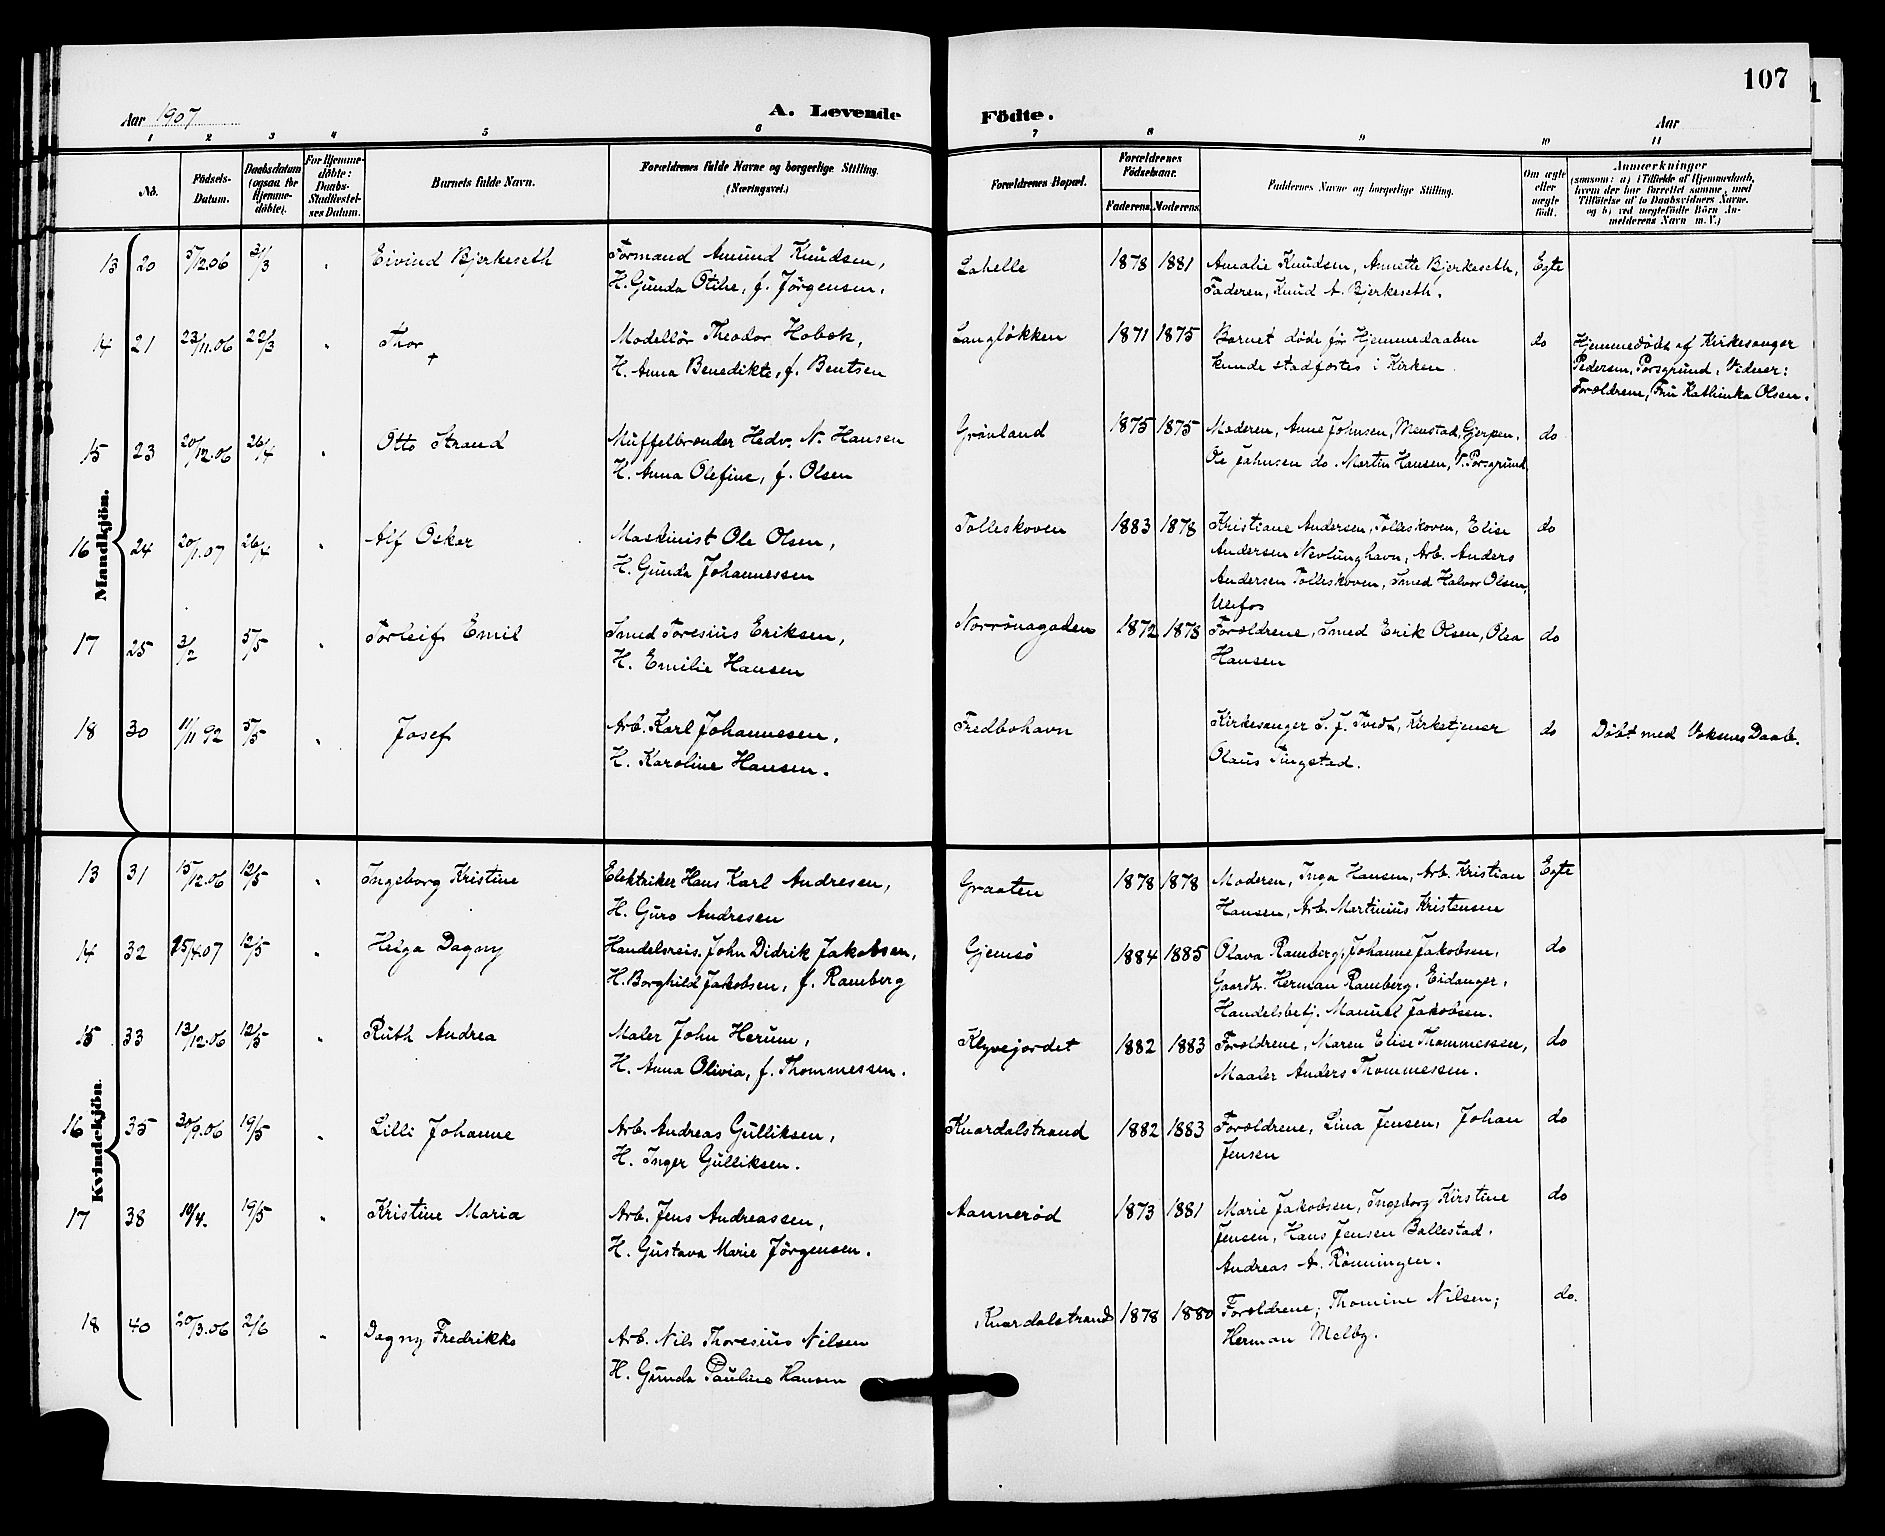 107
Aar 1907
A. Levende Födte.
Aar
1 2 3 4 5 6 7 8 9 10 11
No.
Födsels-Datum.
Daabsdatum (ogsaa for Hjemme-döbte).
For Hjemme-döbte: Daabs-Stadfæstel-ses Datum.
Barnets fulde Navn.
Forældrenes fulde Navne og borgerlige Stilling. (Næringsvei.)
Forældrenes Bopæl.
Forældrenes Födselsaar.
Faderens. Moderens.
Faddernes Navne og borgerlige Stilling.
Om ægte eller uægte födt.
Anmærkninger
(saasom: a) i Tilfælde af Hjemmedaab, hvem der har forrettet samme, med Tilföielse af to Daabsvidners Navne, og b) ved uægtefödte Börn An-melderens Navn m. V.)
Mandkjön.
13 20 5/12.06 31/3 " Eivind Bjerkeseth Formand Amund Knudsen, Lahelle 1878 1881 Amalie Knudsen, Annette Bjerkeseth, Egte
H. Gunda Otilie, f. Jörgensen. Faderen, Knud A. Bjerkeseth.
14 21 23/11.06 22/3 " Thor + Modellör Theodor Hobæk, Langlökken 1871 1875 Barnet döde för Hjemmedaaben do Hjemmedöbt af Kirkesanger
H. Anna Benedikte, f. Bentsen kunde stadfæstes i Kirken. Pedersen, Porsgrund, Vidner:
Forældrene, Fru Kathinka Olsen.
15 23 20/12.06 26/4 " Otto Strand Muffelbrænder Hedv. N. Hansen Grönland 1875 1875 Moderen, Anne Johnsen, Menstad, Gjerpen. do
H. Anna Olefine, f. Olsen Ole Johnsen do. Martin Hansen, V. Porsgrund
16 24 20/1.07 26/4 " Alf Oskar Maskinist Ole Olsen, Tolleskoven 1883 1878 Kristiane Andersen, Tolleskoven, Elise do
H. Gunda Johannessen Andersen Nevlunghavn, Arb. Anders
Andersen Tolleskoven, Smed Halvor Olsen,
Ulefos
17 25 3/2 5/5 " Torleif Emil Smed Toresius Eriksen, Norrönagaden 1872 1878 Forældrene, Smed Erik Olsen, Olea do
H. Emilie Hansen Hansen
18 30 11/11 92 5/5 " Josef Arb. Karl Johannesen, Fredbohavn Kirkesanger S. J. Tvedt, Kirketjener do Döbt med Voksnes Daab.
H. Karoline Hansen. Olaus Tingstad.
Kvindekjön.
13 31 15/12.06 12/5 " Ingeborg Kristine Elektriker Hans Karl Andresen, Graaten 1878 1878 Moderen, Inga Hansen, Arb. Kristian Egte
H. Guro Andresen Hansen, Arb. Martinius Kristensen
14 32 25/4.07 12/5 " Helga Dagny Handelsreis. John Didrik Jakobsen, Gjemsö 1884 1885 Olava Ramberg, Johanne Jakobsen, do
H. Borghild Jakobsen, f. Ramberg Gaardbr. Herman Ramberg, Eidanger,
Handelsbetj. Manuel Jakobsen.
15 33 13/12.06 12/5 " Ruth Andrea Maler John Herum, Klyvejordet 1882 1883 Forældrene, Maren Elise Thommessen, do
H. Anna Olivia, f. Thommessen. Maaler Anders Thommessen.
16 35 30/9.06 19/5 " Lilli Johanne Arb. Andreas Gulliksen, Knardalstrand 1882 1883 Forældrene, Lina Jensen, Johan do
H. Inger Gulliksen. Jensen
17 38 10/4. 19/5 " Kristine Maria Arb. Jens Andreassen, Aannerød 1873 1881 Marie Jakobsen, Ingeborg Kirstine do
H. Gustava Marie Jörgensen. Jensen, Hans Jensen Ballestad.
Andreas A. Rönningen.
18 40 20/3.06 2/6 " Dagny Fredrikke Arb. Nils Thoresius Nilsen Knardalstrand 1878 1880 Forældrene, Thomine Nilsen; do.
H. Gunda Pauline Hansen Herman Melby.